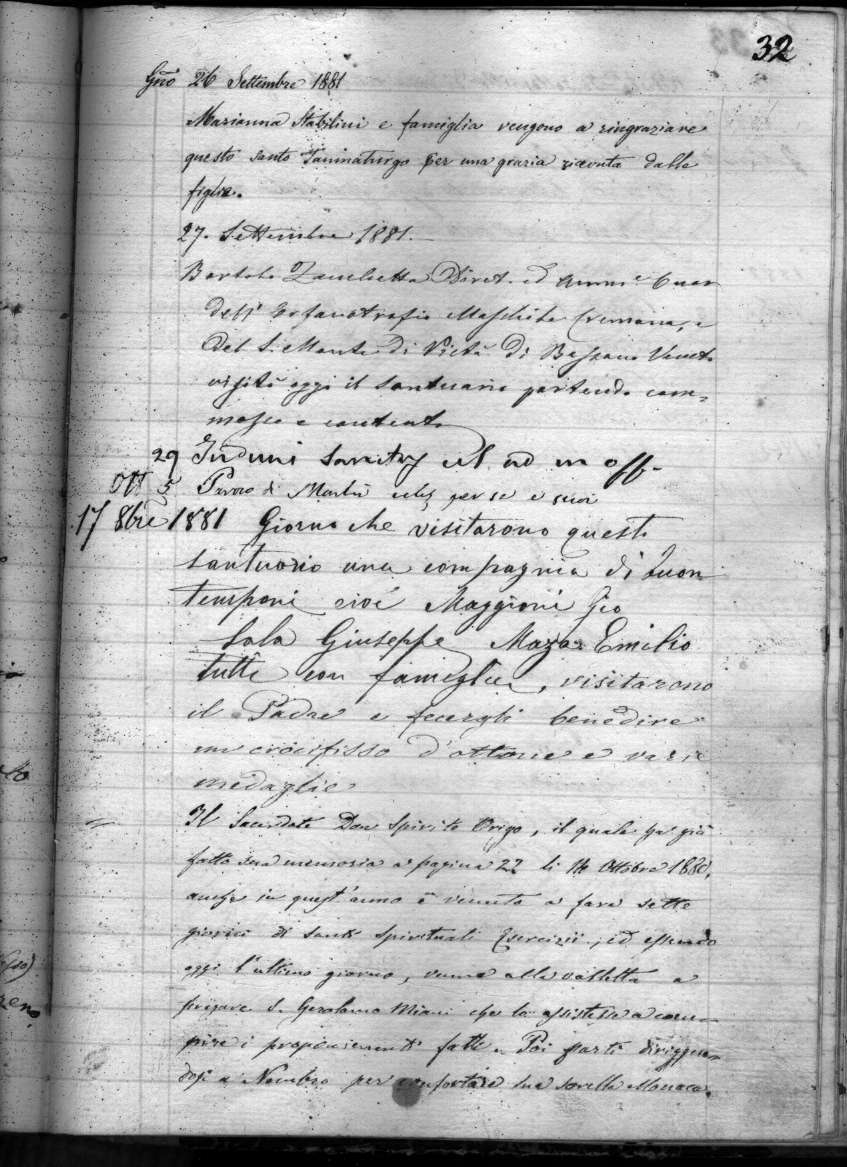 32
Gno 26 Settembre 1881
Marianna Stabilini e famiglia vengono a ringraziare
questo santo Taumaturgo per una grazia ricevuta dalle
figlie.
27. Settembre 1881.
Bortolo Zanchetta Diret. ed Amm.e
dell' Orfanotrofio Maschile Cremona, e
del S. Monte di Pietà di Bassano Veneto
visitò oggi il santuario partendo com=
mosso e contento
29 Induni
Ott 5 Parroco di per se e suoi
17 8bre 1881 Giorno che visitarono questo
santuario una compagnia di buon
temponi cioè Maggioni Gio
Sala Giuseppe Maza Emilio
tutti con famiglia, visitarono
il Padre e fecergli benedire
un crocifisso d'ottone e varie
medaglie
Il Sacerdote Don Spirito Origo, il quale ha già
fatto sua memoria a pagina 22 li 14 Ottobre 1880,
anche in quest'anno è venuto a fare sette
giorni di santi spirituali Esercizii, ed essendo
oggi l'ultimo giorno, venne alla valletta a
pregare S. Gerolamo Miani che lo assistesse a com=
pire i proponimenti fatti. Poi partì dirigen=
dosi a Nembro per confortare sua sorella Monaca.